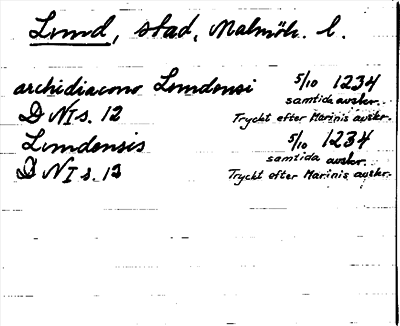 Lund, stad, Malmöh. l.
archidiacono Londensi 5/10 1234
samtida avskr.
D N I s. 12 Tryckt efter Marinis avskr.
Londensis 5/10 1234
samtida avskr.
D N I s. 13 Tryckt efter Marinis avskr.